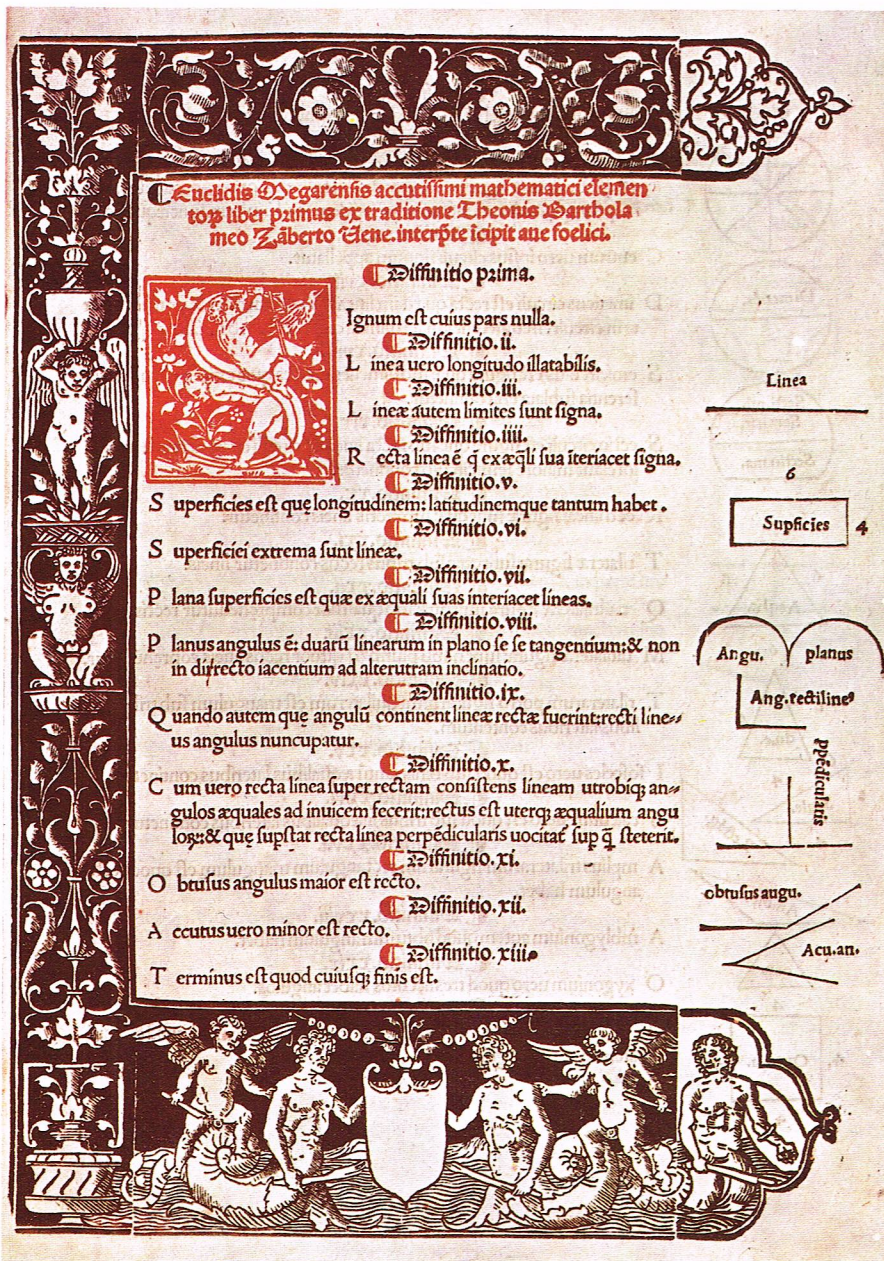 Euclidis Megarensis accutissimi mathematici elemen
toꝝ liber primus ex traditione Theonis Barthola
meo Zāberto Vene. interp̄te īcipit aue foelici.
Diffinitio prima.
SIgnum est cuius pars nulla.
Diffinitio.ii.
L inea uero longitudo illatabilis.
Diffinitio.iii.
L ineæ autem limites sunt signa.
Diffinitio.iiii.
R ecta linea ē q̄ ex æq̄li sua īteriacet signa.
Diffinitio.v.
S uperficies est quę longitudinem: latitudinemque tantum habet.
Diffinitio.vi.
S uperficiei extrema sunt lineæ.
Diffinitio.vii.
P lana superficies est quæ ex æquali suas interiacet lineas.
Diffinitio.viii.
P lanus angulus ē: duarū linearum in plano se se tangentium:& non
in directo iacentium ad alterutram inclinatio.
Diffinitio.ix.
Q uando autem quę angulū continent lineæ rectæ fuerint:recti line⸗
us angulus nuncupatur.
Diffinitio.x.
C um uero recta linea super rectam consistens lineam utrobiqꝫ an⸗
gulos æquales ad inuicem fecerit:rectus est uterqꝫ æqualium angu
loꝝ:& quę supstat recta linea perpēdicularis uocitat᷑ sup q̄ steterit.
Diffinitio.xi.
O btusus angulus maior est recto.
Diffinitio.xii.
A ccutus uero minor est recto.
Diffinitio.xiii.
T erminus est quod cuiusqꝫ finis est.
Linea
6
Supficies 4
Angu. planus
Ang.rectilineꝰ
ppēdicularis
obtusus augu.
Acu.an.